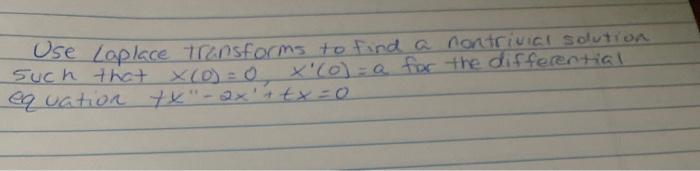 Use Laplace transforms to find a nontrivial solution
such that x(0)=0, x'(0)=a for the differential
equation tx''-2x'+tx=0